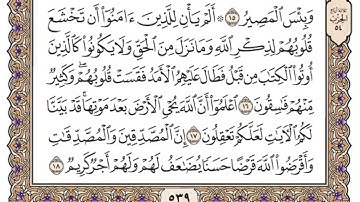 وَبِئْسَ ٱلْمَصِيرُ ١٥ أَلَمْ يَأْنِ لِلَّذِينَ ءَامَنُوٓاْ أَن تَخْشَعَ
قُلُوبُهُمْ لِذِكْرِ ٱللَّهِ وَمَا نَزَلَ مِنَ ٱلْحَقِّ وَلَا يَكُونُواْ كَٱلَّذِينَ
أُوتُواْ ٱلْكِتَٰبَ مِن قَبْلُ فَطَالَ عَلَيْهِمُ ٱلْأَمَدُ فَقَسَتْ قُلُوبُهُمْ ۖ وَكَثِيرٌ
مِّنْهُمْ فَٰسِقُونَ ١٦ ٱعْلَمُوٓاْ أَنَّ ٱللَّهَ يُحْىِ ٱلْأَرْضَ بَعْدَ مَوْتِهَا ۚ قَدْ بَيَّنَّا
لَكُمُ ٱلْءَايَٰتِ لَعَلَّكُمْ تَعْقِلُونَ ١٧ إِنَّ ٱلْمُصَّدِّقِينَ وَٱلْمُصَّدِّقَٰتِ
وَأَقْرَضُواْ ٱللَّهَ قَرْضًا حَسَنًا يُضَٰعَفُ لَهُمْ وَلَهُمْ أَجْرٌ كَرِيمٌ ١٨
٥٣٩